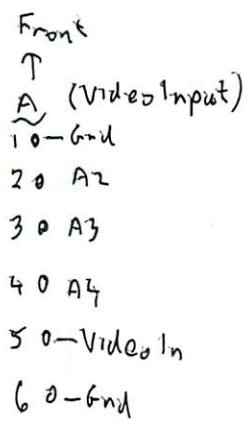 Front
↑
A (Video Input)
1 o-Gnd
2 o A2
3 o A3
4 o A4
5 o-Video In
6 o-Gnd